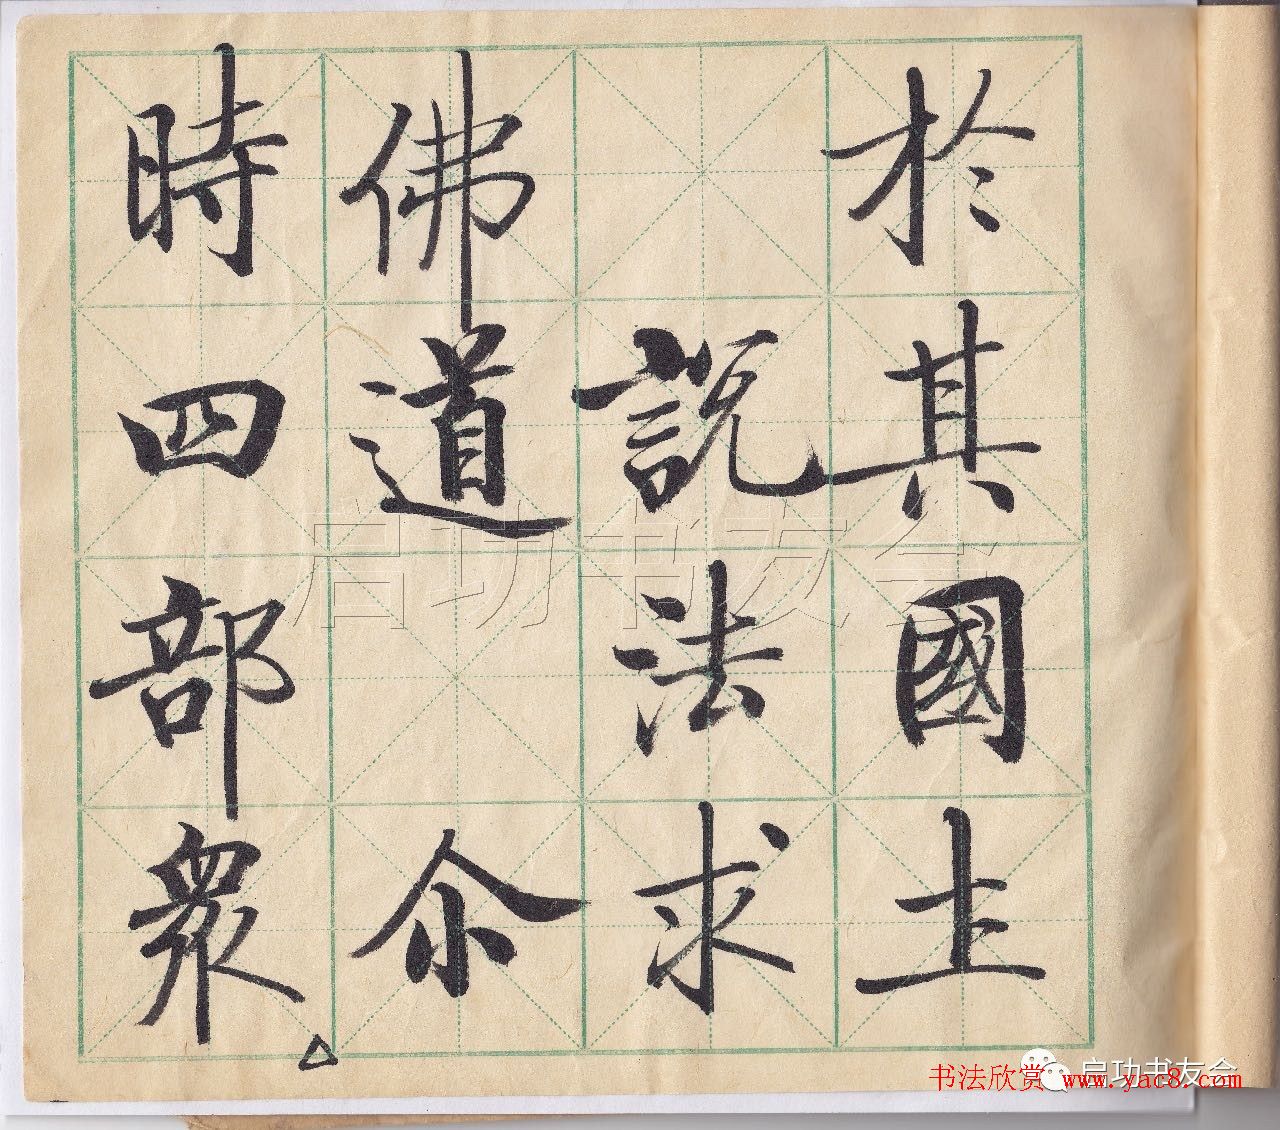 於其國土
說法求
佛道 尒
時四部眾
启功书友会
书法欣赏 www.yac8.com
启功书友会